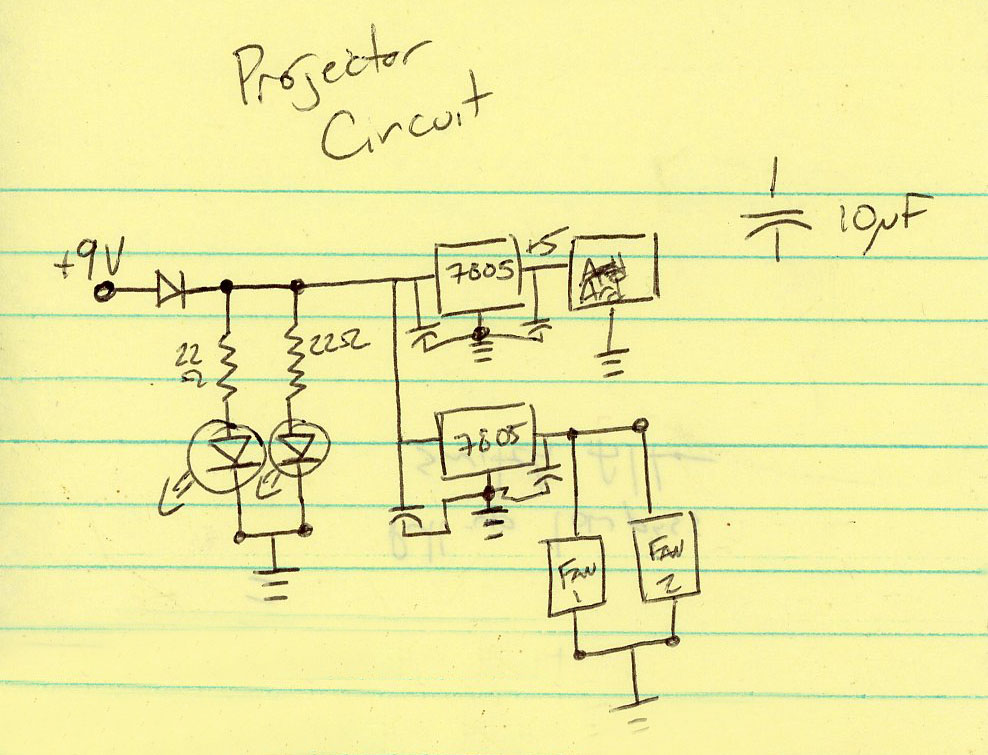 Projector
Circuit
10μF
+9V
7805
+5
Ard
22
Ω
22Ω
7805
FAN
1
FAN
2